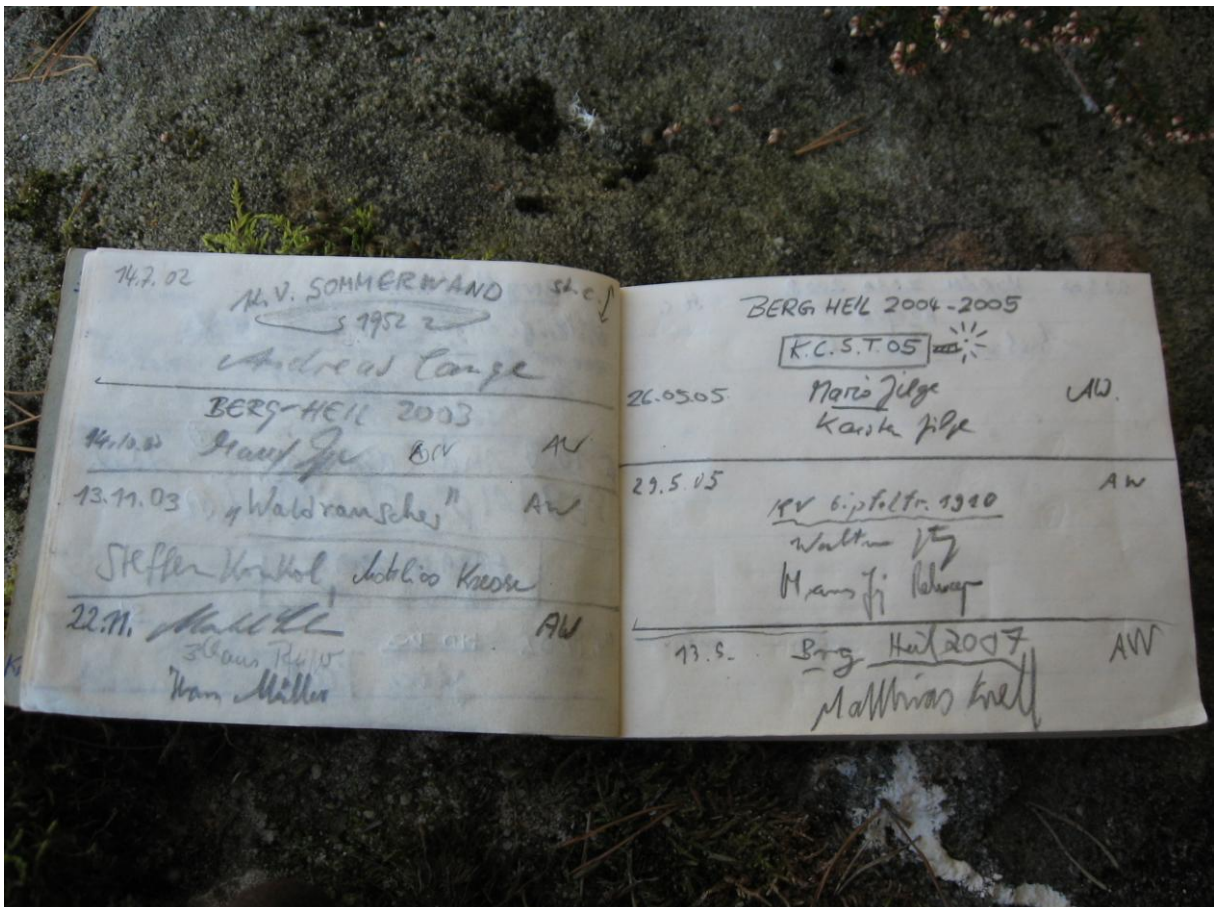 14.7.02 K.V. SOMMERWAND St. e.
1952
Andreas Lange
BERG-HEIL 2003
14.10.03 AW
13.11.03 „Waldrauscher" AW
Steffen Kunkol, Matthias Krosse
22.11. AW
3 Claus
Hans Müller
BERG HEIL 2004-2005
K.C.S.T.05
26.05.05 Mario Jilge AW.
Karsten Jilge
29.5.05 AW
KV Gipfelstr. 1910
Walter
Hans Jj
13.5. Berg Heil 2007 AW
Matthias Knell